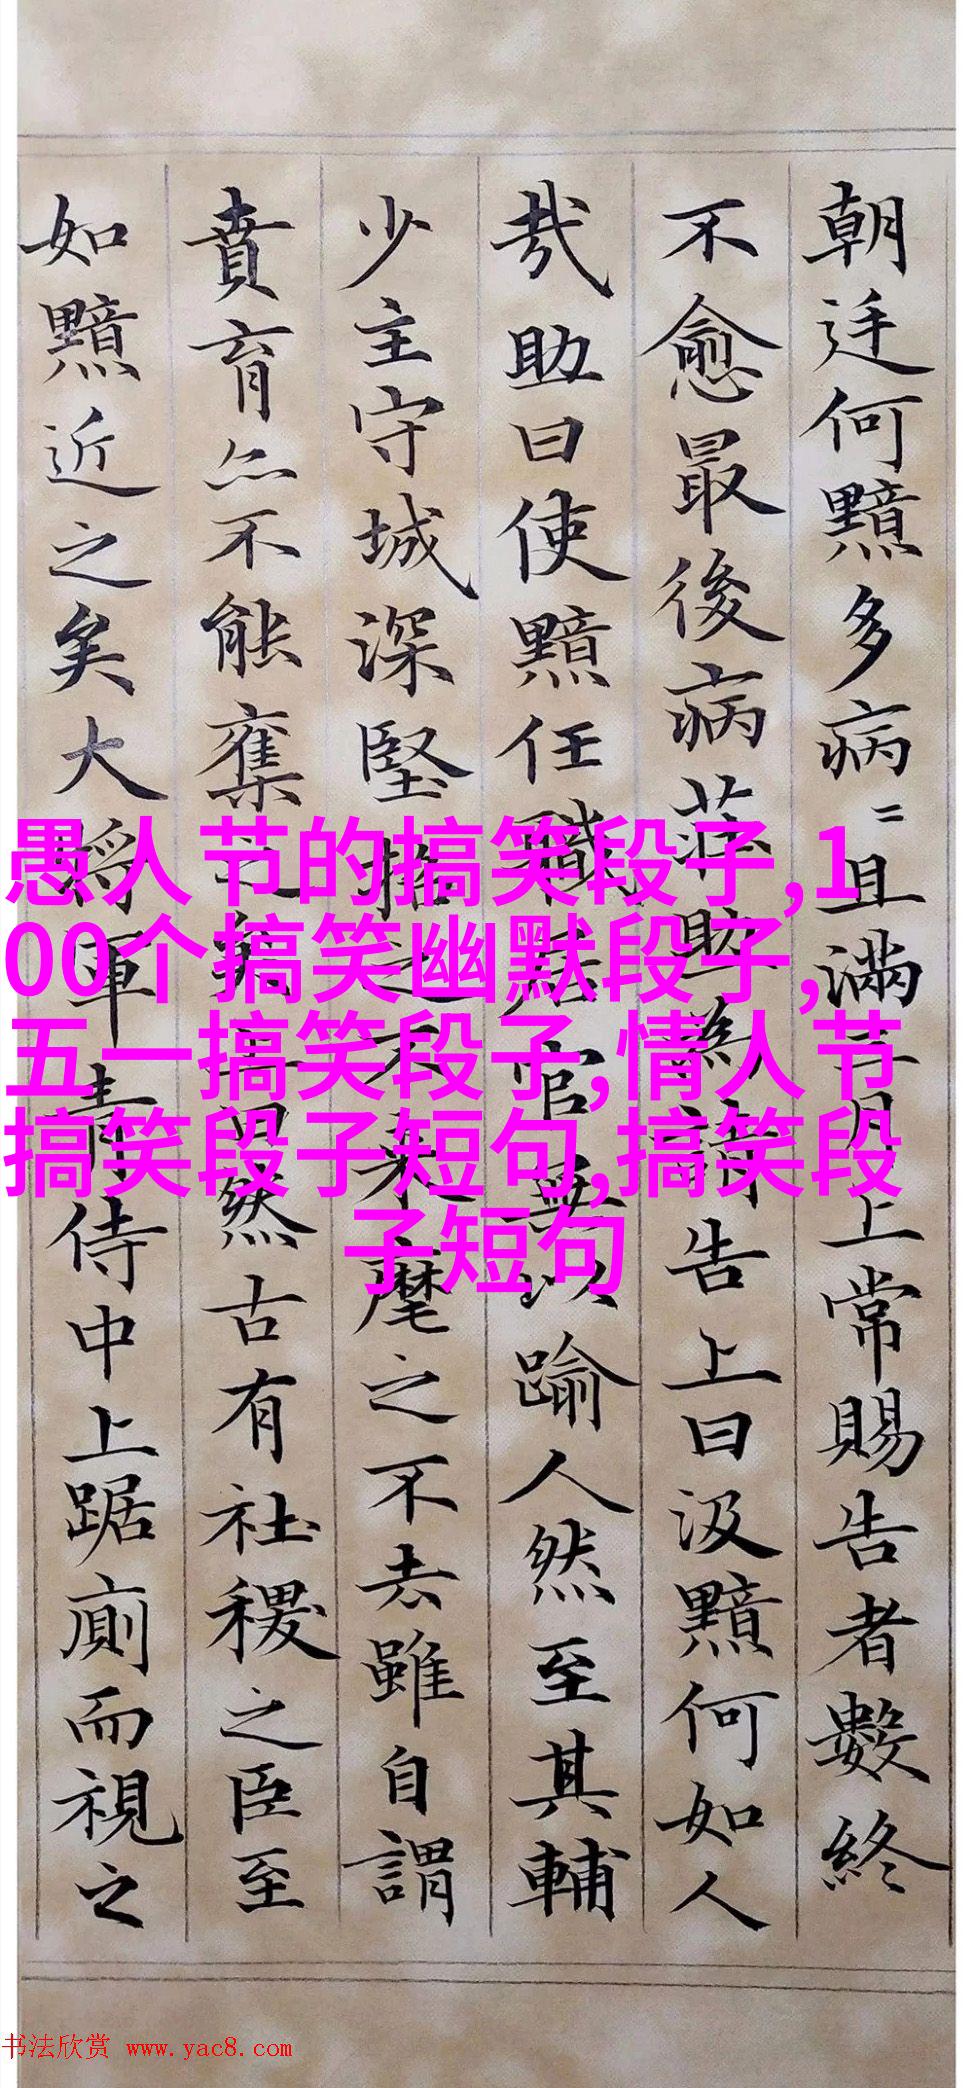 朝廷何黯多病〻且滿三月上常賜告者數終
不愈最後病莊助為請告上曰汲黯何如人
哉助曰使黯任職居官無以踰人然至其輔
少主守城深堅招之不来麾之不去雖自謂
賁育亦不能奪之矣上曰然古有社稷之臣至
如黯近之矣大將軍青侍中上踞廁而視之
愚人节的搞笑段子,1
00个搞笑幽默段子,
五一搞笑段子,情人节
搞笑段子短句,搞笑段
子短句
书法欣赏 www.yac8.com